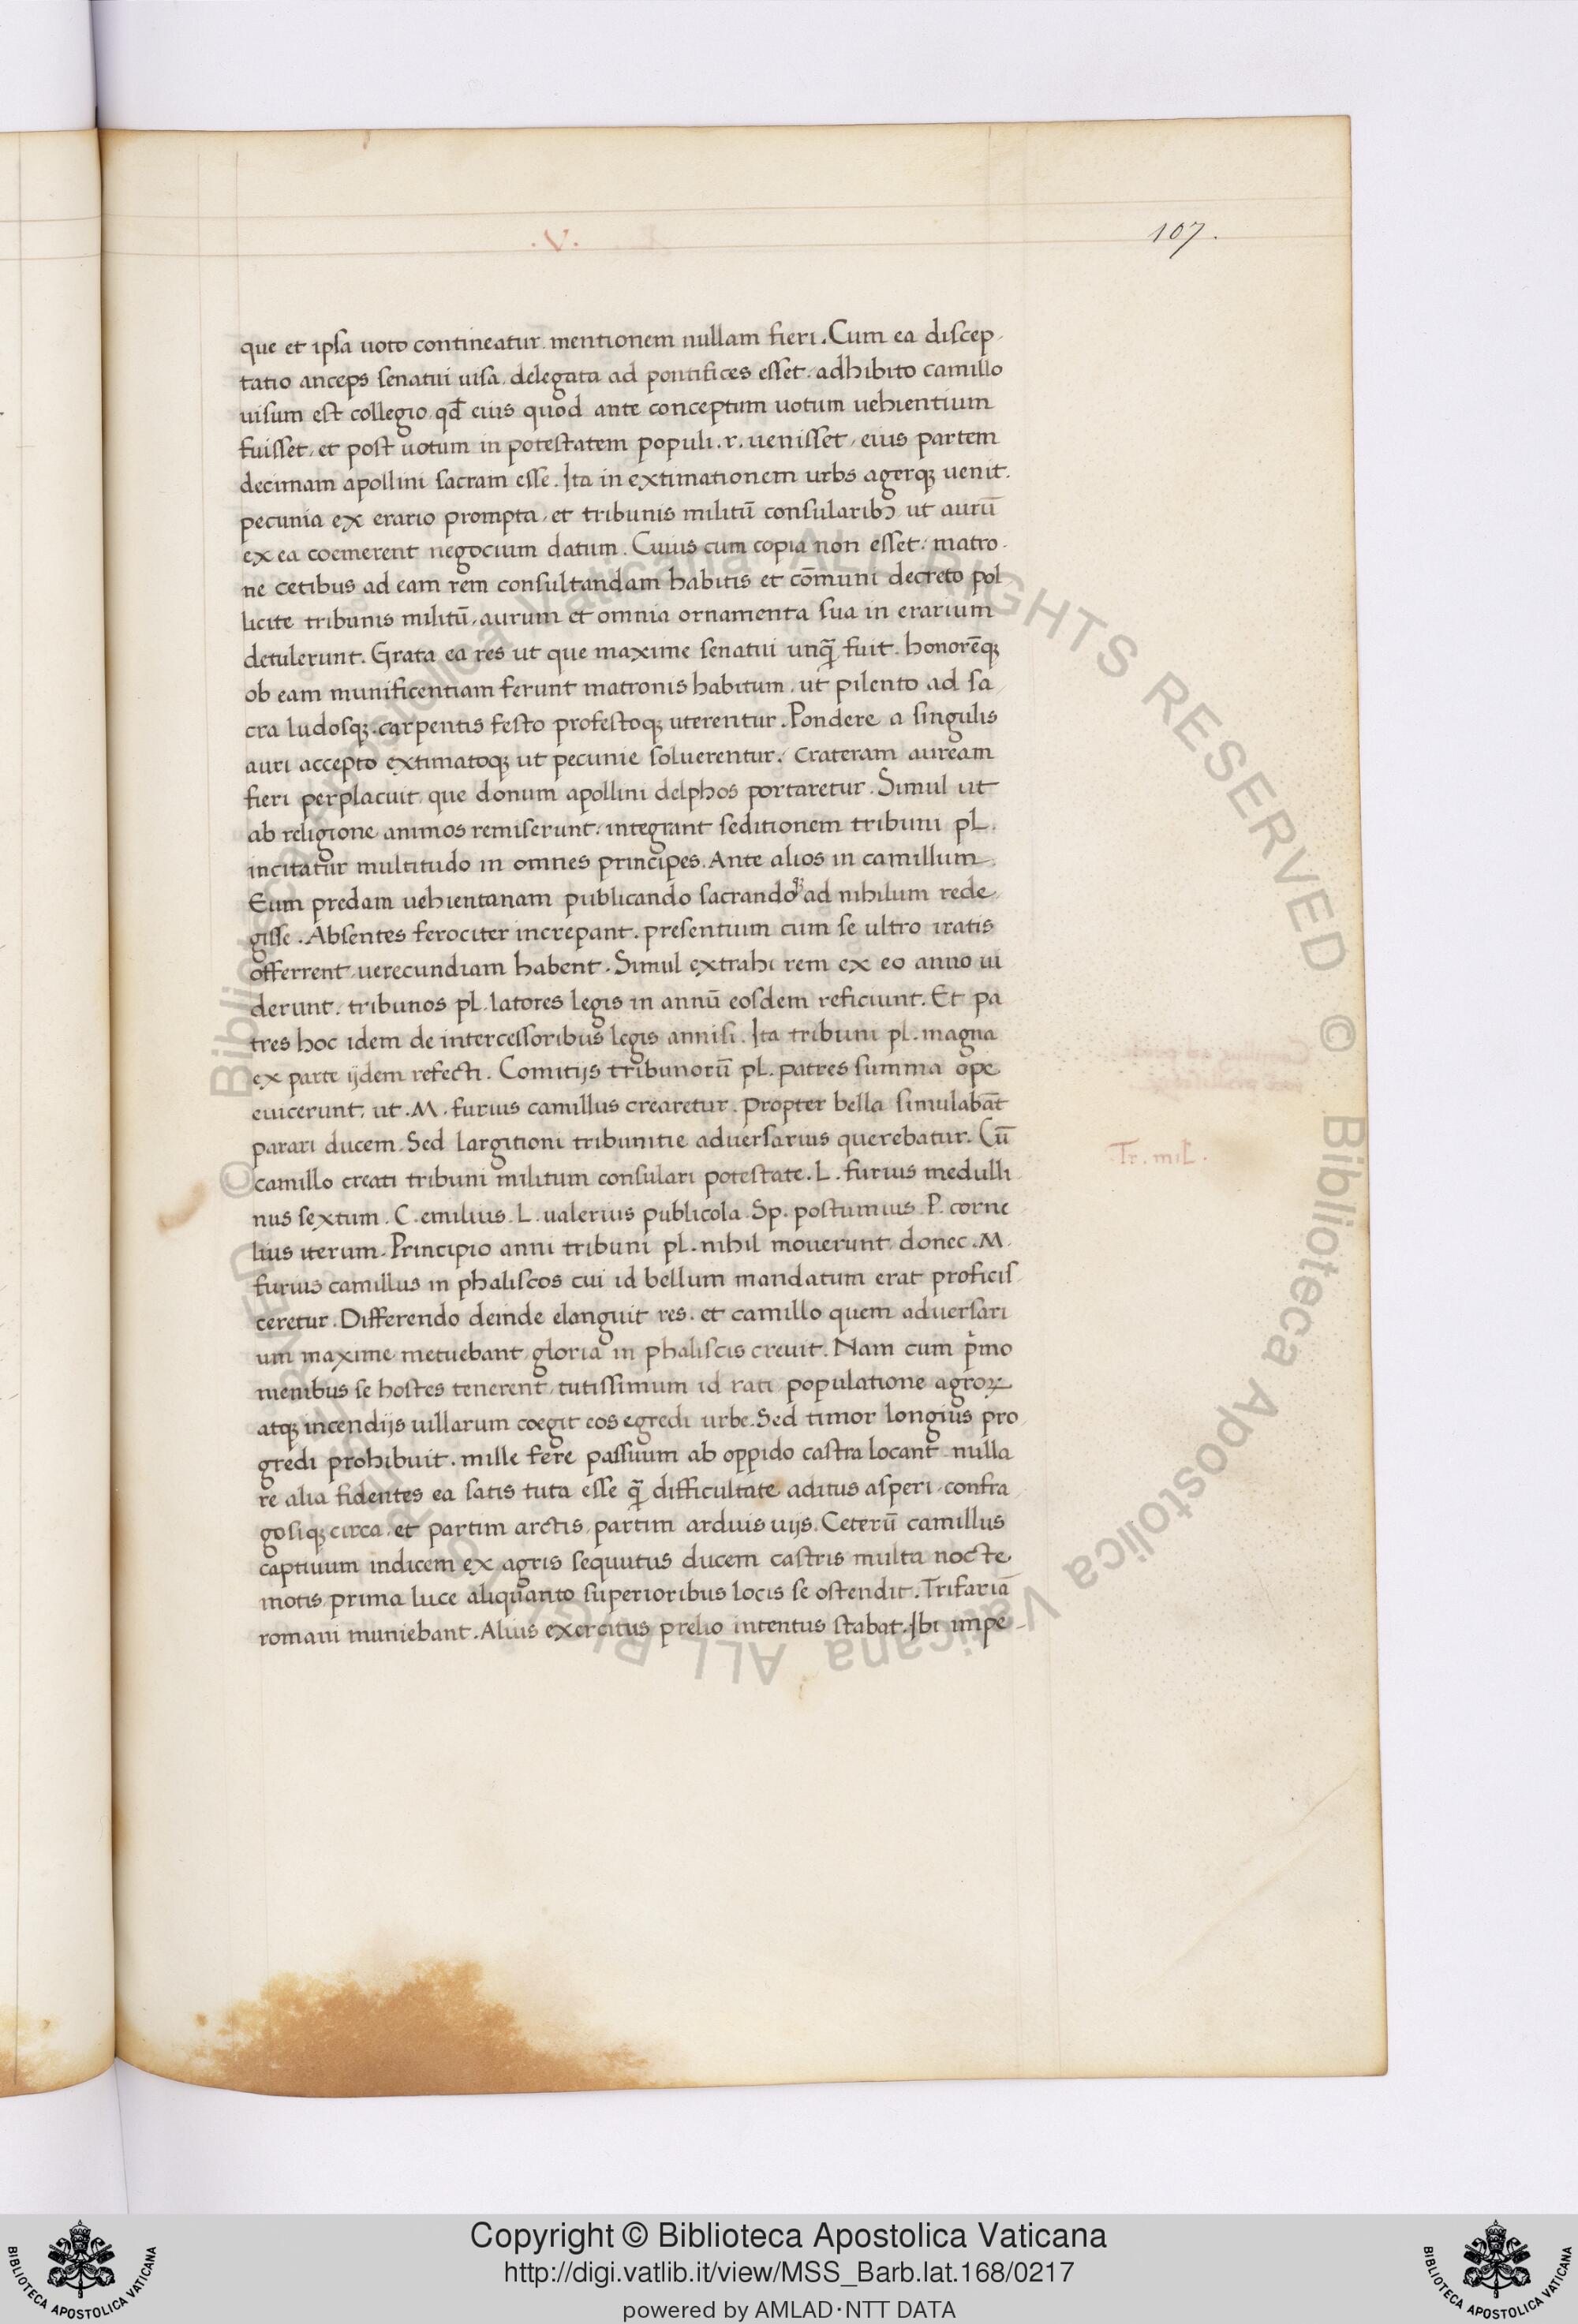 .V.
107.
que et ipsa uoto contineatur mentionem nullam fieri. Cum ea discep-
tatio anceps senatui uisa, delegata ad pontifices esset, adhibito camillo
uisum est collegio, qđ eius quod ante conceptum uotum uehientium
fuisset, et post uotum in potestatem populi .r. uenisset, eius partem
decimam apollini sacram esse. Ita in extimationem urbs agerqꝫ uenit.
pecunia ex erario prompta, et tribunis militū consularibꝫ ut aurū
ex ea coemerent negocium datum. Cuius cum copia non esset, matro-
ne cetibus ad eam rem consultandam habitis et cōmuni decreto pol
licite tribunis militū, aurum et omnia ornamenta sua in erarium
detulerunt. Grata ea res ut que maxime senatui unqꝫ̄ fuit. honorēqꝫ
ob eam munificentiam ferunt matronis habitum, ut pilento ad sa
cra ludosqꝫ, carpentis festo profestoqꝫ uterentur. Pondere a singulis
auri accepto extimatoqꝫ ut pecunie soluerentur, crateram auream
fieri perplacuit, que donum apollini delphos portaretur. Simul ut
ab religione animos remiserunt, integrant seditionem tribuni pl.
incitatur multitudo in omnes principes. Ante alios in camillum.
Eum predam uehientanam publicando sacrandoqꝫ ad nihilum rede
gisse. Absentes ferociter increpant. presentium cum se ultro iratis
offerrent, uerecundiam habent. Simul extrahi rem ex eo anno ui
derunt, tribunos pl. latores legis in annū eosdem reficiunt. Et pa
tres hoc idem de intercessoribus legis annisi. Ita tribuni pl. magna
ex parte ijdem refecti. Comitijs tribunorū pl. patres summa ope
euicerunt, ut .M. furius camillus crearetur. propter bella simulabāt
parari ducem. Sed largitioni tribunitie aduersarius querebatur. Cū
camillo creati tribuni militum consulari potestate. L. furius medulli
nus sextum. C. emilius. L. ualerius publicola. Sp. postumius. P. corne
lius iterum. Principio anni tribuni pl. nihil mouerunt, donec .M.
furius camillus in phaliscos cui id bellum mandatum erat proficis
ceretur. Differendo deinde elanguit res. et camillo quem aduersari
um maxime metuebant, gloria in phaliscis creuit. Nam cum p̍mo
menibus se hostes tenerent, tutissimum id rati, populatione agroꝝ
atqꝫ incendijs uillarum coegit eos egredi urbe. Sed timor longius pro
gredi prohibuit. mille fere passuum ab oppido castra locant nulla
re alia fidentes ea satis tuta esse qꝫ̄ difficultate aditus asperi, confra
gosiqꝫ circa, et partim arctis, partim arduis uijs. Ceterū camillus
captiuum indicem ex agris sequutus ducem castris multa nocte
motis, prima luce aliquanto superioribus locis se ostendit. Trifariā
romani muniebant. Alius exercitus prelio intentus stabat. Ibi impe-
Tr. mil.
© Biblioteca Apostolica Vaticana ALL RIGHTS RESERVED © Biblioteca Apostolica Vaticana ALL RIGHTS RESERVED
Copyright © Biblioteca Apostolica Vaticana
http://digi.vatlib.it/view/MSS_Barb.lat.168/0217
powered by AMLAD·NTT DATA
BIBLIOTECA APOSTOLICA VATICANA
BIBLIOTECA APOSTOLICA VATICANA